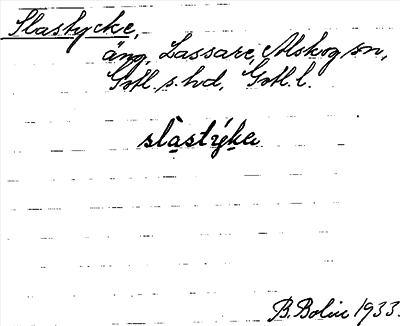 Slastycke,
äng, Lassare, Alskog sn,
Gotl. s. hd, Gotl. l.
slàstýka
B. Bolin 1933.